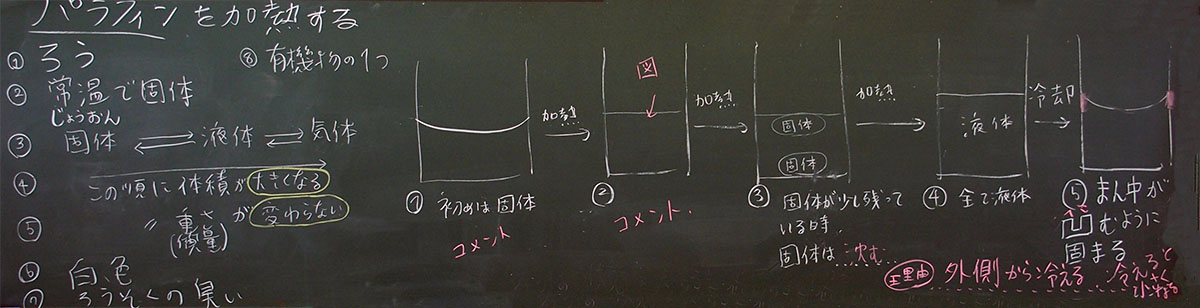 パラフィンを加熱する
① ろう
⑧ 有機物の1つ
② 常温で固体
じょうおん
③ 固体 ⇄ 液体 ⇄ 気体
④ この順に体積が大きくなる
⑤ 〃 重さが変わらない
(質量)
⑥ 白色
⑦ ろうそくの臭い
加熱
図
加熱
固体
固体
加熱
液体
冷却
① 初めは固体
コメント
②
コメント.
③ 固体が少し残って
いる時.
固体は沈む
④ 全て液体
⑤ まん中が
凹むように
固まる
理由 外側から冷える 冷えると
小さくなる